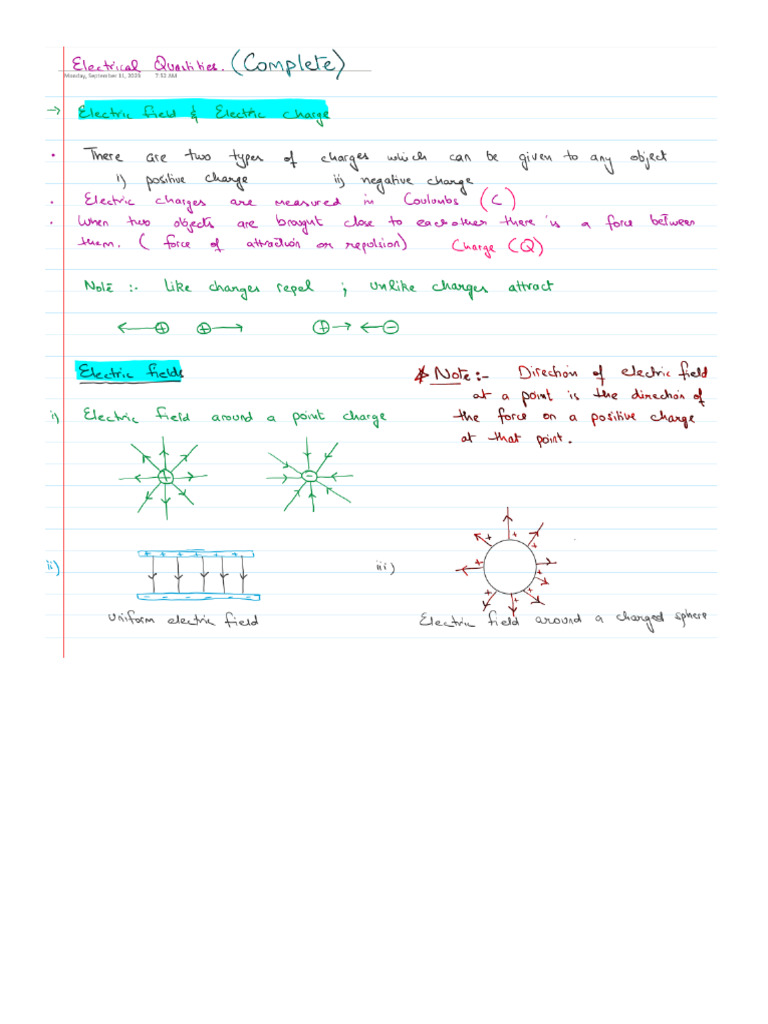 Electrical Quantities. (Complete)
Monday, September 11, 2023 7:52 AM
→ Electric field & Electric charge
• There are two types of charges which can be given to any object
i) positive charge ii) negative charge
• Electric charges are measured in Couloubs (C)
• When two objects are brought close to each other there is a force between
them. ( force of attraction or repulsion) Charge (Q)
Note :- like charges repel ; unlike charges attract
+ + + -
Electric fields
* Note :- Direction of electric field
at a point is the direction of
the force on a positive charge
at that point.
i) Electric field around a point charge
+ -
ii)
+ + + + +
- - - - -
uniform electric field
iii)
+ + + + + + + + +
Electric field around a charged sphere